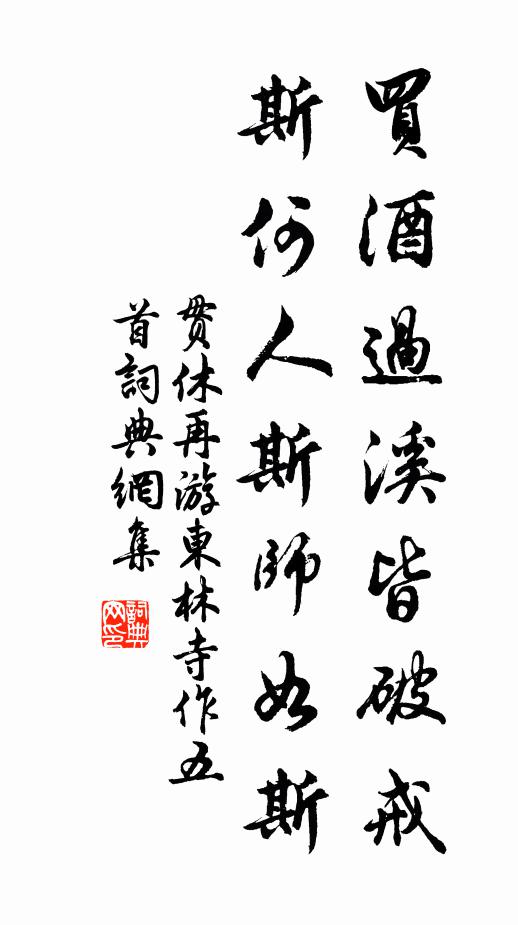 買酒過溪皆破戒
斯何人斯師如斯
贯休再游東林寺作五
首詞典網集
詞典
网印